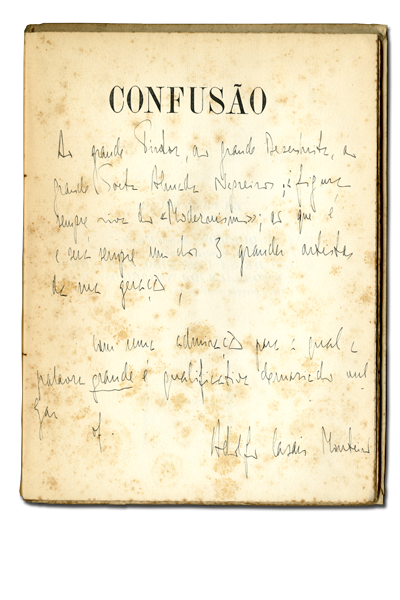 CONFUSÃO
Ao grande Pintor, ao grande Desenhista, ao
grande Poeta Almada Negreiros, à figura
sempre viva do «Modernismo»; ao que é
e será sempre um dos 3 grandes artistas
da sua geração,
com uma admiração para a qual a
palavra grande é qualificativo demasiado vul
gar
of.
Adolfo Casais Monteiro